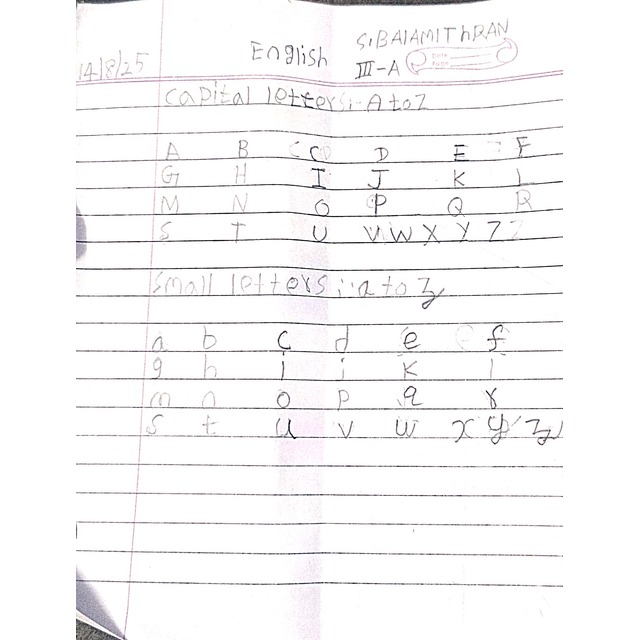 S.BALAMIThRAN
English
14/8/25
III-A
Date
Page
Capital letters:- A to Z
A B C D E F
G H I J K L
M N O P Q R
S T U V W X Y Z
Small letters :- a to z
a b c d e f
g h i j k l
m n o p q r
s t u v w x y z